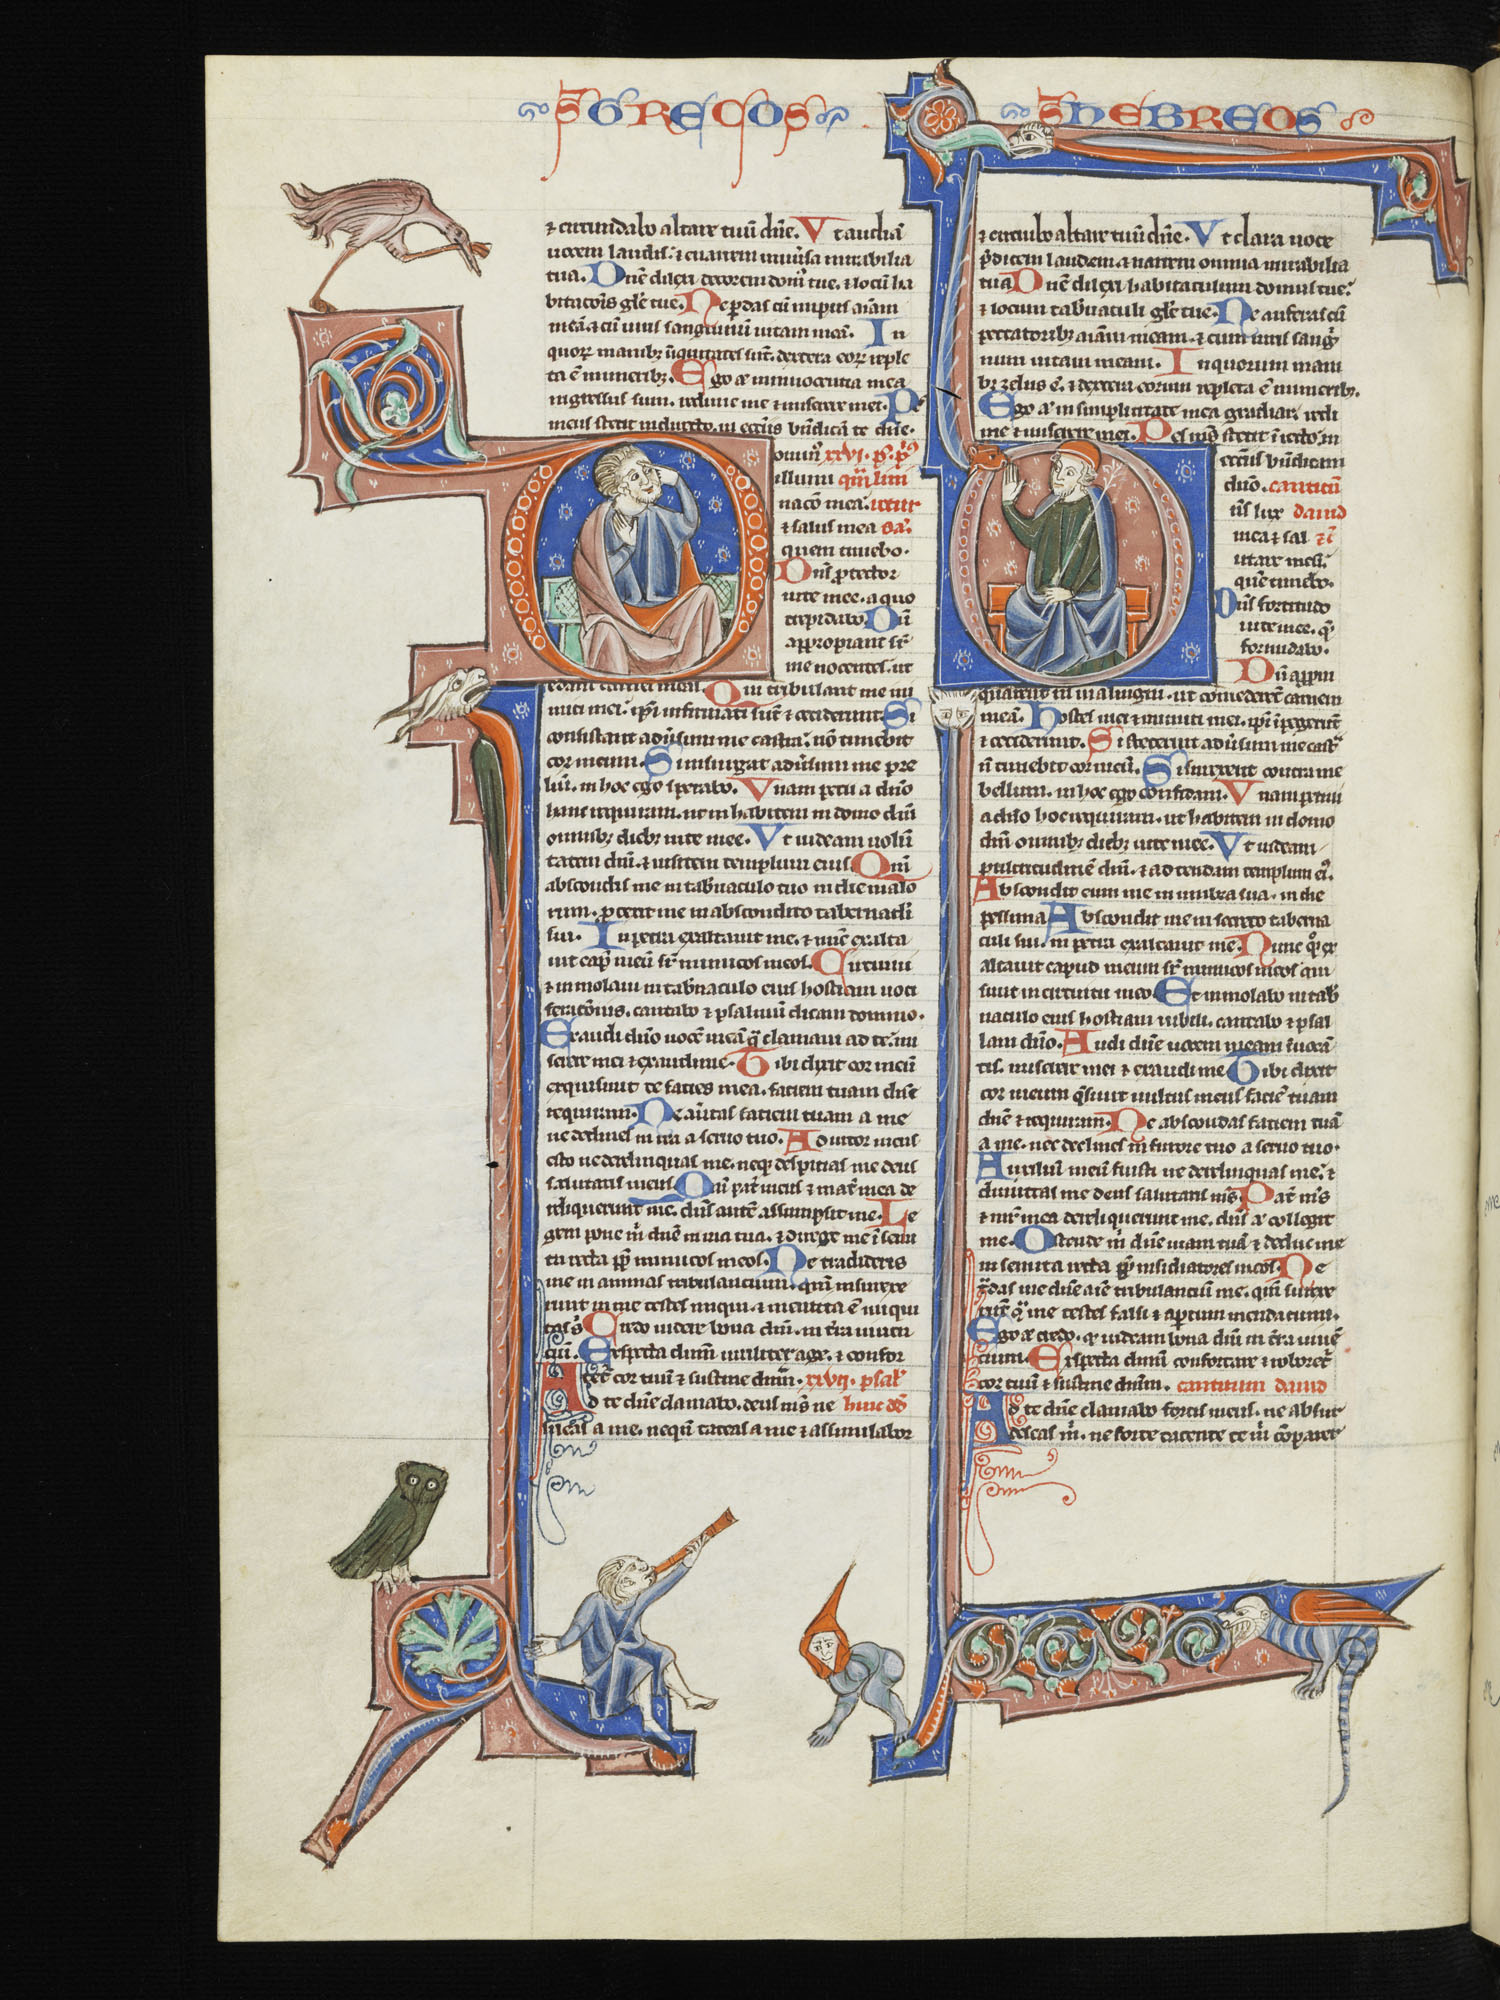 S. GRECOS
⁊ circumdabo altare tuū dn̄e. Ut audiā
uocem laudis. ⁊ enarrem uniuersa mirabilia
tua. Dn̄e dilexi decorem dom' tue. ⁊ locū ha
bitacōis gl̄e tue. Ne perdas cū impiis aīam
meā. ⁊ cū uiris sanguinū uitam meā. In
quoꝝ manibꝫ iniquitates sūt. dextera eoꝝ reple
ta ē muneribꝫ. Ego aū in innocentia mea
ingressus sum. redime me ⁊ miserere mei. Pes
meus stetit in directo. in ecclīis bn̄dicā te dn̄e.
xxvi. ps.
illumi
nacō mea.
⁊ salus mea
quem timebo.
Dn̄s ꝓtector
uite mee. a quo
trepidabo. Dū
appropiant sr̄
me nocentes. ut
edant carnes meas. Qui tribulant me ini
mici mei. ip̄i infirmati sūt ⁊ ceciderunt. Si
consistant aduersum me castra. nō timebit
cor meum. Si insurgat aduersum me pre
liū. in hoc ego sperabo. Unam petii a dn̄o
hanc requiram. ut inhabitem in domo dn̄i
omnibꝫ diebꝫ uite mee. Ut uideam uolūp
tatem dn̄i. ⁊ uisitem templum eius. Qm̄
abscondit me in tab̄naculo suo in die malo
rum. ꝓtexit me in abscondito tabernaculi
sui. In petra exaltauit me. ⁊ nūc exalta
uit capud meū sr̄ inimicos meos. Circuiui
⁊ immolaui in tab̄naculo eius hostiam uoci
feracōnis. cantabo ⁊ psalmū dicam domino.
Exaudi dn̄e uocē meā qua clamaui ad te. mi
serere mei ⁊ exaudi me. Tibi dixit cor meū
exquisiuit te facies mea. faciem tuam dn̄e
requiram. Ne auertas faciem tuam a me
ne declines in ira a seruo tuo. Adiutor meus
esto ne derelinquas me. neqꝫ despicias me deus
salutaris meus. Qm̄ pat̄ meus ⁊ mat̄ mea de
reliquerunt me. dn̄s autē assumpsit me. Le
gem pone m̄ dn̄e in uia tua. ⁊ dirige me ī semi
ta recta ꝓp̄ inimicos meos. Ne tradideris
me in animas tribulantium. qm̄ insurrexe
runt in me testes iniqui. ⁊ mentita ē iniqui
tas s. Credo uidere bona dn̄i. in t̄ra uiuen
tiū. Expecta dn̄m uiriliter age. ⁊ confor
tet cor tuū ⁊ sustine dn̄m. xxvii. psal'
Ad te dn̄e clamabo. deus m̄s ne
sileas a me. nequn̄ taceas a me ⁊ assimilabor
S. HEBREOS
⁊ circuibo altare tuū dn̄e. Ut clara uoce
p̄dicem laudem. ⁊ narrem omnia mirabilia
tua. Dn̄e dilexi habitaculum domus tue.
⁊ locum tab̄naculi gl̄e tue. Ne auferas cū
peccatoribꝫ aīam meam. ⁊ cum uiris sangui
num uitam meam. In quorum mani
bꝫ zelus ē. ⁊ dextera eorum repleta ē muneribꝫ.
Ego aū in simplicitate mea gradiar. redi
me ⁊ miserere mei. Pes m̄s stetit ī recto. in
ecclīis bn̄dicam
dn̄o. canticū
n̄s lux dauid
mea ⁊ sal
utare meū.
quē timebo.
Dn̄s fortitudo
uite mee. quē
formidabo.
Dū appro
quarent m̄ maligni. ut comederēt carnem
meā. Hostes mei ⁊ inimici mei. ip̄i īpegerunt
⁊ ceciderunt. Si steterint aduersum me cast̄
n̄ timebit cor meū. Si surrexerit contra me
bellum. in hoc ego confidam. Unam petiui
a dn̄o hoc requiram. ut habitem in domo
dn̄i omnibꝫ diebꝫ uite mee. Ut uideam
pulcritudinē dn̄i. ⁊ attendam templum ei'.
Abscondit enim me in umbra sua. in die
pessima. Abscondit me in secreto taberna
culi sui. in petra exaltauit me. Nunc quoqꝫ ex
altauit capud meum sr̄ inimicos meos qui
sunt in circuitu meo. Et immolabo in tab̄
naculo eius hostiam iubili. cantabo ⁊ psal
lam dn̄o. Audi dn̄e uocem meam īuocan
tis. miserere mei ⁊ exaudi me. Tibi dixit
cor meum q̄siuit uultus meus faciē tuam
dn̄e ⁊ requiram. Ne abscondas faciem tuā
a me. nec declines in furore tuo a seruo tuo.
Auxiliū meū fuisti ne derelinquas me. ⁊
dimittas me deus salutaris m̄s. Pat̄ m̄s
⁊ mr̄ mea dereliquerunt me. dn̄s aū collegit
me. Ostende m̄ dn̄e uiam tuā ⁊ deduc me
in semita recta ꝓp̄ insidiatores meos. Ne
tradas me dn̄e aīe tribulantiū me. qm̄ surrexe
runt in me testes falsi ⁊ aptum mendacium.
Ego aū credo. qꝫ uideam bona dn̄i in t̄ra uiuen
tium. Expecta dn̄m confortare ⁊ roboret̄
cor tuū ⁊ sustine dn̄m. canticum dauid
Ad te dn̄e clamabo fortis meus. ne absur
descas m̄. ne forte tacente te m̄ cōparer